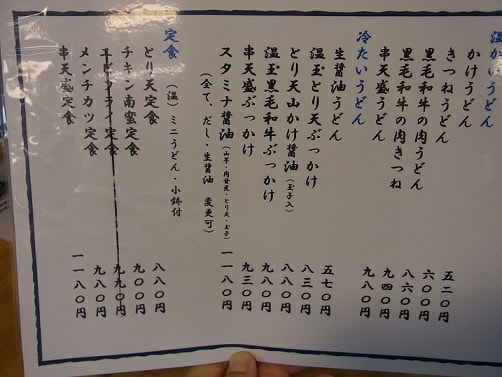 温かいうどん
かけうどん
きつねうどん 五二〇円
黒毛和牛の肉うどん 六〇〇円
黒毛和牛の肉きつね 八六〇円
串天盛うどん 九四〇円
九八〇円
冷たいうどん
生醤油うどん 五七〇円
温玉とり天ぶっかけ 八三〇円
とり天山かけ醤油(玉子入) 八八〇円
温玉黒毛和牛ぶっかけ 九八〇円
串天盛ぶっかけ 九三〇円
スタミナ醤油(山芋・肉甘煮・とり天・玉子) 一一八〇円
(全て、だし・生醤油 変更可)
定食
(温)ミニうどん・小鉢付
とり天定食 八八〇円
チキン南蛮定食 九〇〇円
エビフライ定食 九九〇円
メンチカツ定食 九八〇円
串天盛定食 一一八〇円